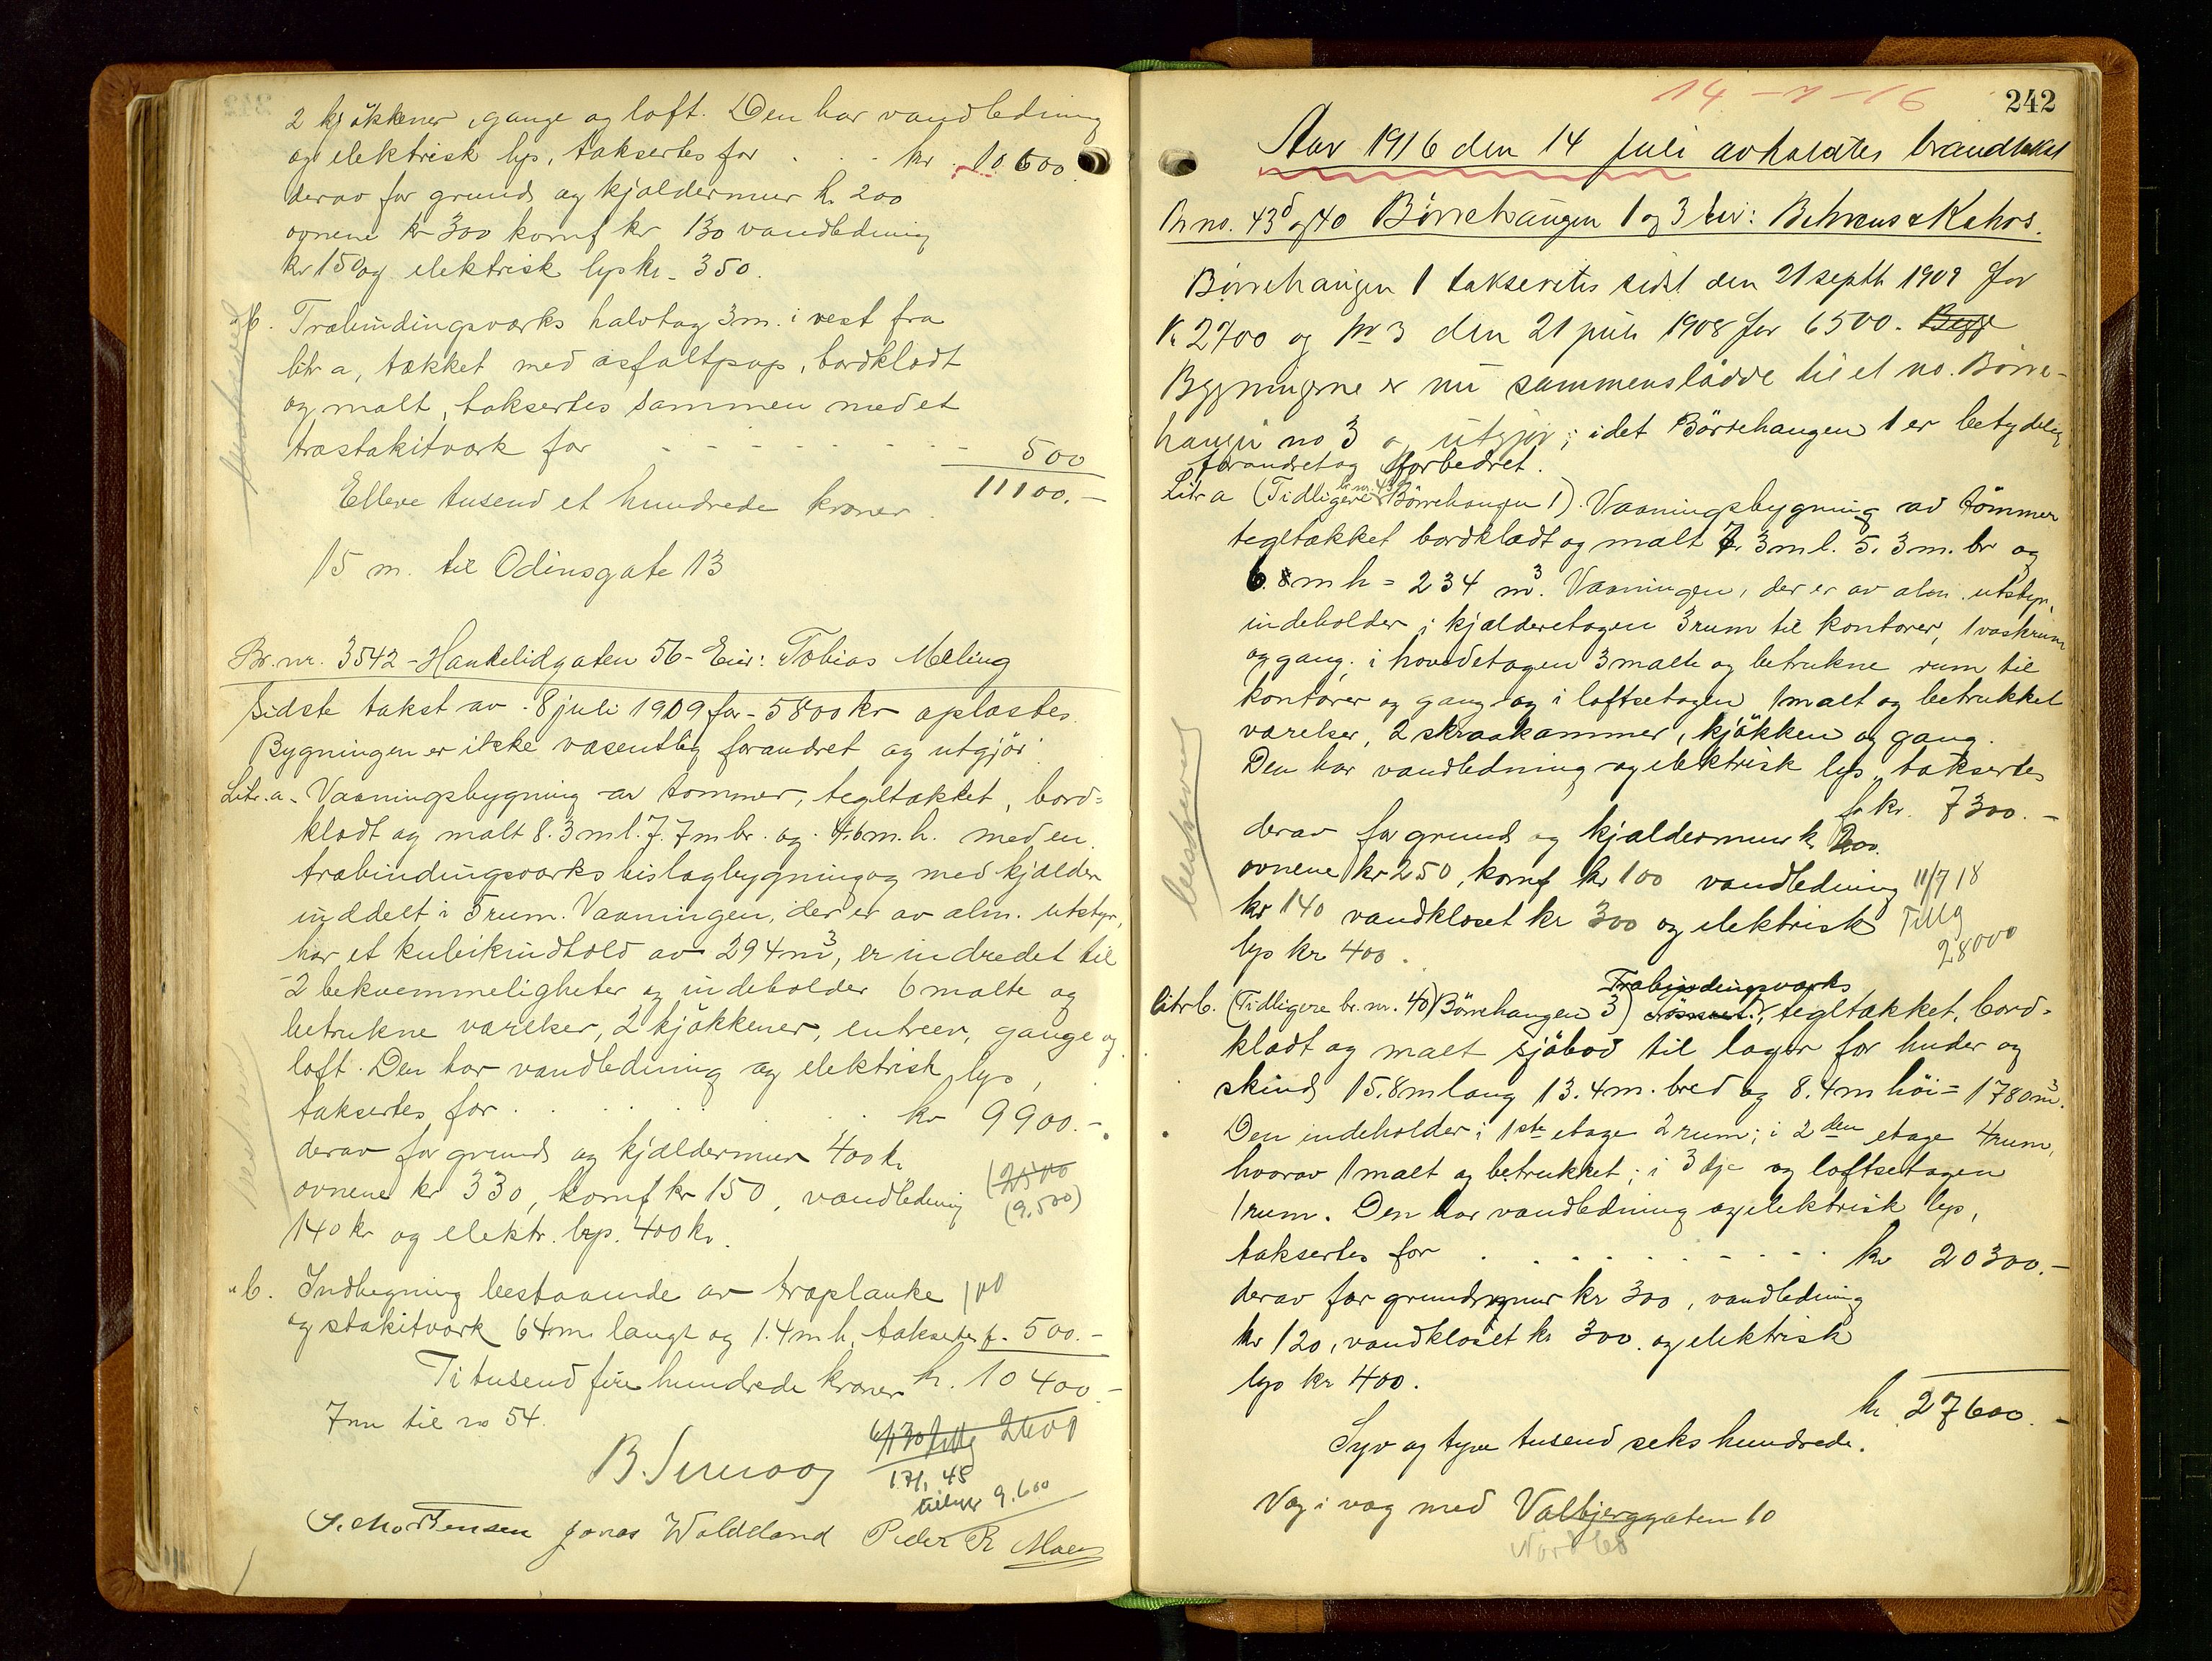 2 kjøkkener, gange og loft. Den har vandledning
og elektrisk lys, taksertes for . . . kr 10600.
derav for grund og kjældermur kr. 200
ovnene kr 300 komf kr 130 vandledning
kr 150 og elektrisk lys kr. 350.
" b. Træbindingsværks halvtag 3 m. i vest fra
litr a, tækket med asfaltpap, bordklædt
og malt, taksertes sammen med et
træstakitværk for - - - - - - - 500
Elleve tusend et hundrede kroner. 11100.-
15 m. til Odinsgate 13
Br. nr. 3542 - Haukelidgaten 56 - Eier: Tobias Meling
Sidste takst av 8 juli 1909 for - 5800 kr oplæstes.
Bygningen er ikke væsentlig forandret og utgjör:
Litr. a - Vaaningsbygning av tømmer, tegltækket, bord=
klædt og malt 8.3 m l. 7.7 m br. og 4.6 m. h. med en
træbindingsværks bislagbygning og med kjælder
inddelt i 5 rum. Vaaningen, der er av alm. utstyr,
har et kubikindhold av 294 m³, er indredet til
2 bekvemmeligheter og indeholder 6 malte og
betrukne værelser, 2 kjøkkener, entreer, gange og
loft. Den har vandledning og elektrisk lys,
taksertes for . . . . . . kr 9900.-
derav for grund og kjældermur 400 kr
ovnene kr 330, komf kr 150, vandledning
(2500
(9.500)
140 kr og elektr. lys. 400 kr.
" b. Indhegning bestaaende av træplanke 100
og stakitværk 64 m langt og 1.4 m h, taksertes f. 500.-
Ti tusend fire hundrede kroner kr. 10400.-
7 m til no 54.
2600
17/1, 48
tillegg 9.600
S. Mortensen Jonas Waldeland Peder R
242
14-7-16
Aar 1916 den 14 Juli avholdtes brandtakst
Br no. 43d og 40 Börrehaugen 1 og 3 Eier: Behrens & Kahrs.
Börrehaugen 1 taksertes sidst den 21 septb 1909 for
Kr 2700 og no 3 den 21 juli 1908 for 6500. Bygg
Bygningerne er nu sammenslådde til et no. Börre-
haugen no 3 og utgjør; idet Börrehaugen 1 er betydelig
forandret og forbedret.
Litr a (Tidligere br. nr. 43d Börrehaugen 1). Vaaningsbygning av tömmer
tegltækket bordklædt og malt 7.3 m l. 5.3 m. br og
6.8 m h = 234 m³. Vaaningen, der er av alm. utstyr,
indeholder i kjælderetagen 3 rum til kontorer, 1 vaskrum
og gang; i hovedetagen 3 malte og betrukne rum til
kontorer og gang og i loftsetagen 1 malt og betrukket
værelser, 2 skraakammer, kjøkken og gang.
Den har vandledning og elektrisk lys, taksertes
for kr. 7300.-
derav for grund og kjældermur kr 200.
ovnene kr 250, komf kr 100 vandledning
11/7 18
kr 140 vandkloset kr 300 og elektrisk
Tillg
28000
lys kr 400.
Træbindingsværks
Litr b. (Tidligere br. nr. 40) Börrehaugen 3) tegltækket, bord-
klædt og malt sjöbod til lager for huder og
skind 15.8 m lang 13.4 m. bred og 8.4 m höi = 1780 m³.
Den indeholder i 1ste etage 2 rum; i 2den etage 4 rum,
hvorav 1 malt og betrukket; i 3dje og loftsetagen
1 rum. Den har vandledning og elektrisk lys,
taksertes for . . . . . . . . kr 20300.-
derav for grundmur kr 300, vandledning
kr 120, vandkloset kr 300. og elektrisk
lys kr 400.
kr 27600.-
Syv og tyve tusend seks hundrede.
Væg i væg med Valbjerggaten 10